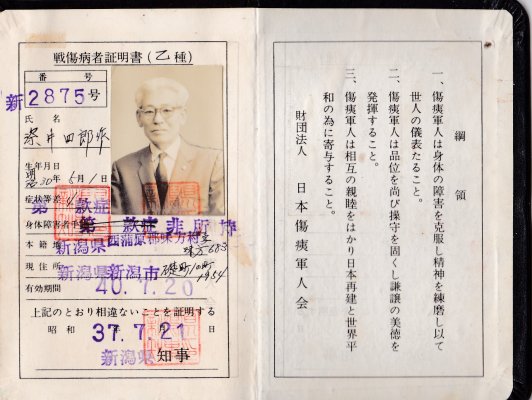 戦傷病者証明書(乙種)
番 号
新2875号
氏 名
井四郎
生年月日
30年5月1日
症状等差
第 款症
身体障害者手
第 款症 非所持
本籍地
新潟県西蒲原郡味方村
現住所
新潟県新潟市
有効期間
40.7.20
上記のとおり相違ないことを証明する
昭和 37.7.21
新潟県知事
綱 領
一、傷痍軍人は身体の障害を克服し精神を練磨し以て
世人の儀表たること。
二、傷痍軍人は品位を尚び操守を固くし謙譲の美徳を
発揮すること。
三、傷痍軍人は相互の親睦をはかり日本再建と世界平
和の為に寄与すること。
財団法人 日本傷痍軍人会